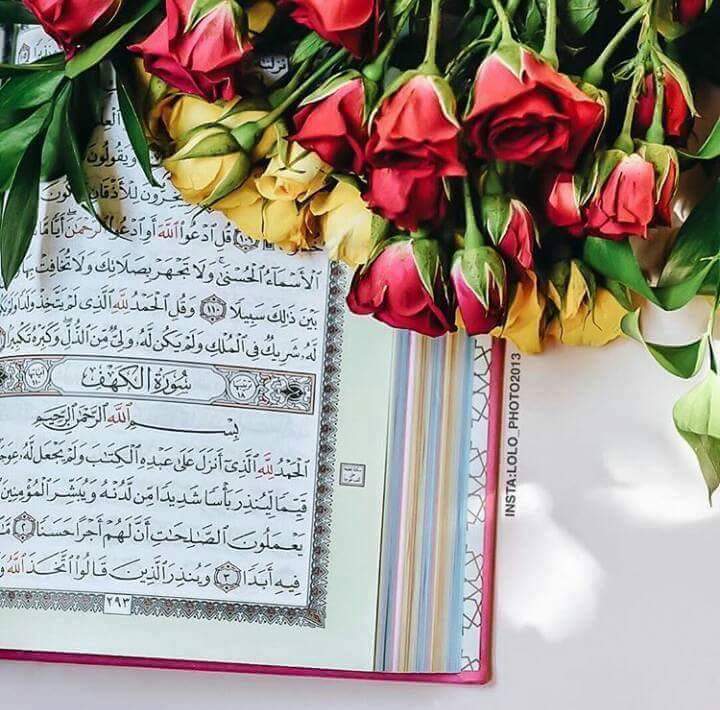 وَيَقُولُونَ
لِلْأَذْقَانِ
قُلِ ٱدْعُوا۟ ٱللَّهَ أَوِ ٱدْعُوا۟ ٱلرَّحْمَٰنَ أَيًّا مَّا
ٱلْأَسْمَآءُ ٱلْحُسْنَىٰ وَلَا تَجْهَرْ بِصَلَاتِكَ وَلَا تُخَافِتْ بِهَا
بَيْنَ ذَٰلِكَ سَبِيلًا ١١٠ وَقُلِ ٱلْحَمْدُ لِلَّهِ ٱلَّذِى لَمْ يَتَّخِذْ وَلَدًا وَلَمْ
لَّهُۥ شَرِيكٌ فِى ٱلْمُلْكِ وَلَمْ يَكُن لَّهُۥ وَلِىٌّ مِّنَ ٱلذُّلِّ وَكَبِّرْهُ تَكْبِيرًۢا
سُورَةُ ٱلْكَهْفِ
بِسْمِ ٱللَّهِ ٱلرَّحْمَٰنِ ٱلرَّحِيمِ
ٱلْحَمْدُ لِلَّهِ ٱلَّذِىٓ أَنزَلَ عَلَىٰ عَبْدِهِ ٱلْكِتَٰبَ وَلَمْ يَجْعَل لَّهُۥ عِوَجَا
قَيِّمًا لِّيُنذِرَ بَأْسًا شَدِيدًا مِّن لَّدُنْهُ وَيُبَشِّرَ ٱلْمُؤْمِنِينَ
يَعْمَلُونَ ٱلصَّٰلِحَٰتِ أَنَّ لَهُمْ أَجْرًا حَسَنًا ٢
فِيهِ أَبَدًا ٣ وَيُنذِرَ ٱلَّذِينَ قَالُوا۟ ٱتَّخَذَ ٱللَّهُ
٢٩٣
INSTA:LOLO_PHOTO2013